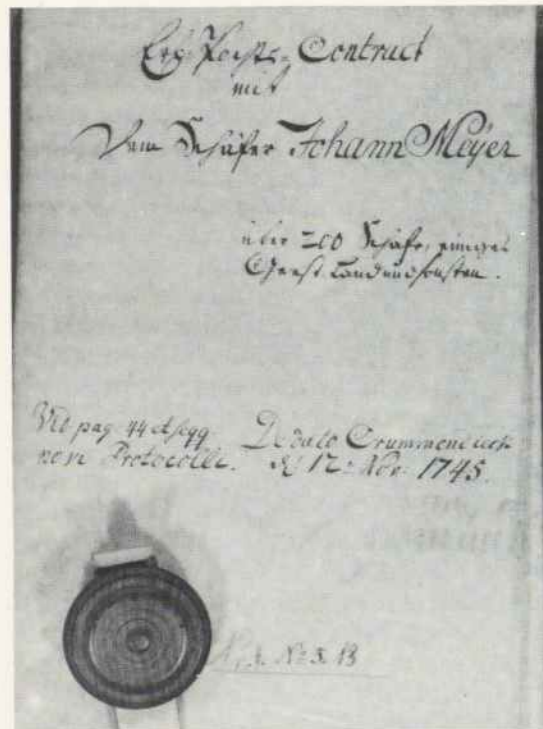 Erb-Pachts-Contract
mit
Dem Schäfer Johann Meÿer
über 200 Schafe, einiges
Geest Land und sonsten.
Vid pag 44 et seqq
novi Protocolli.
De dato Crummendeich
d 12 Nov. 1745.
No 5. B